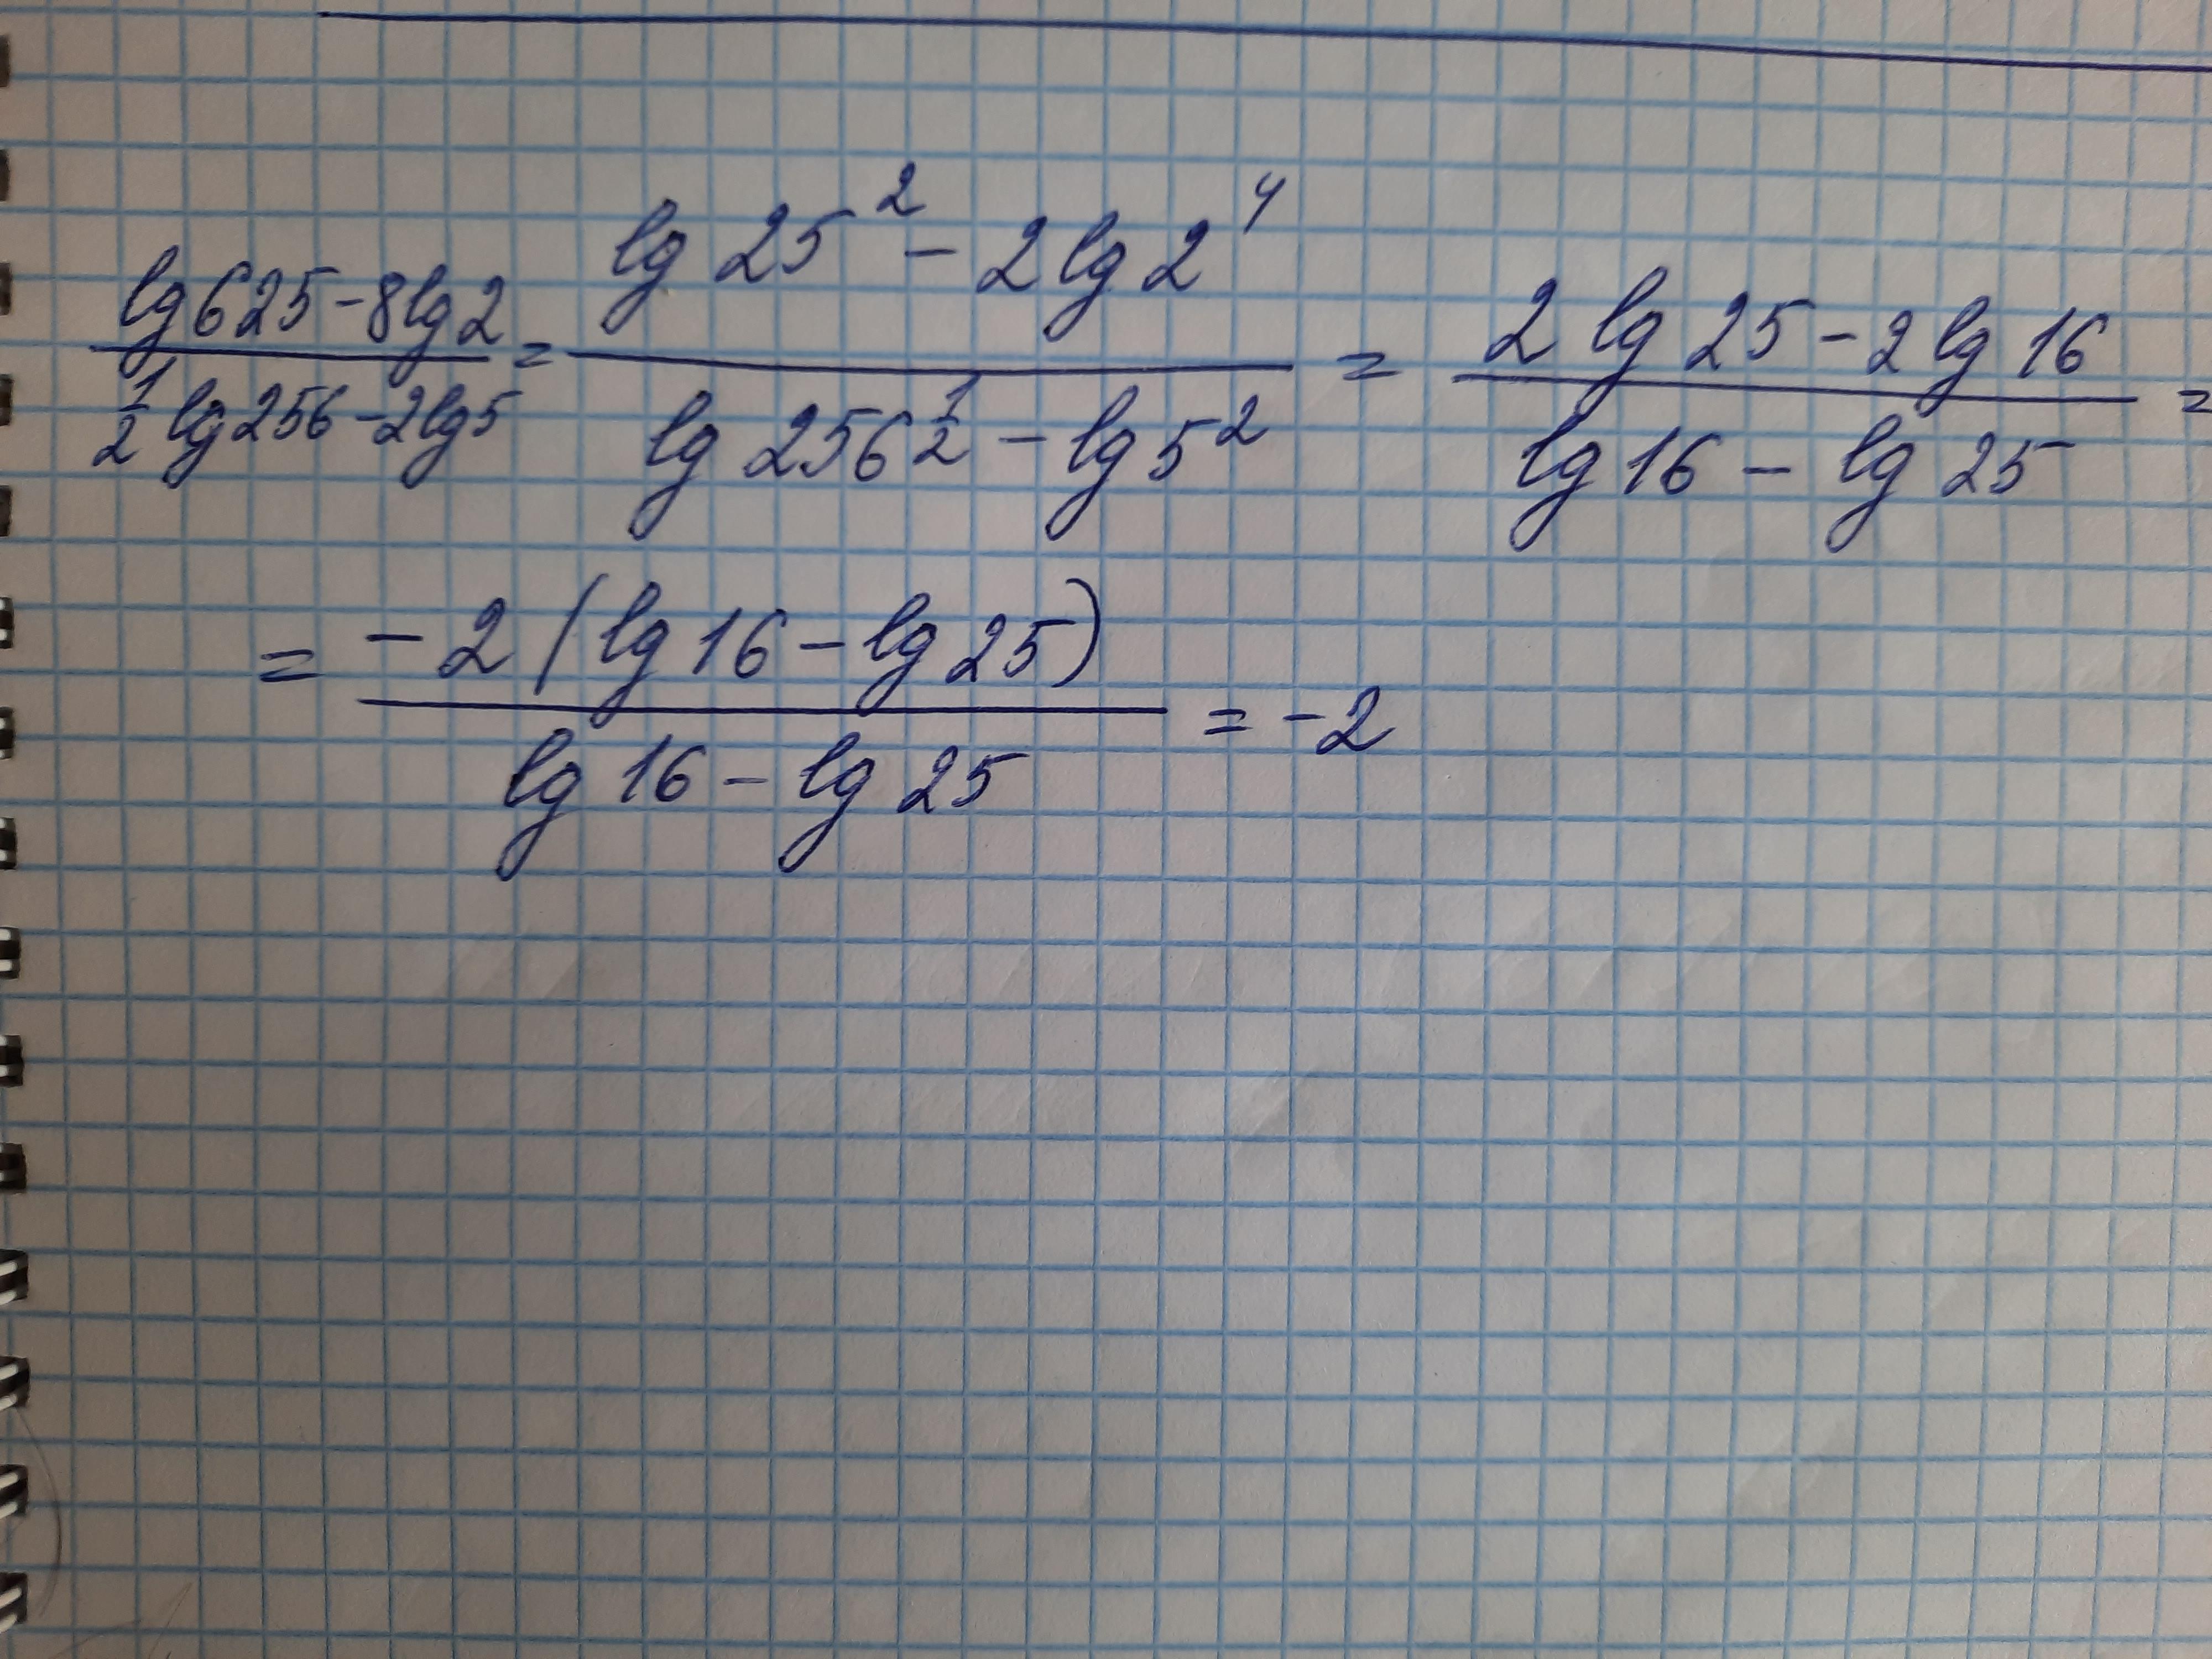 (lg 625 - 8 lg 2) / (1/2 lg 256 - 2 lg 5) = (lg 25² - 2 lg 2⁴) / (lg 256^(1/2) - lg 5²) = (2 lg 25 - 2 lg 16) / (lg 16 - lg 25) =
= (-2 (lg 16 - lg 25)) / (lg 16 - lg 25) = -2